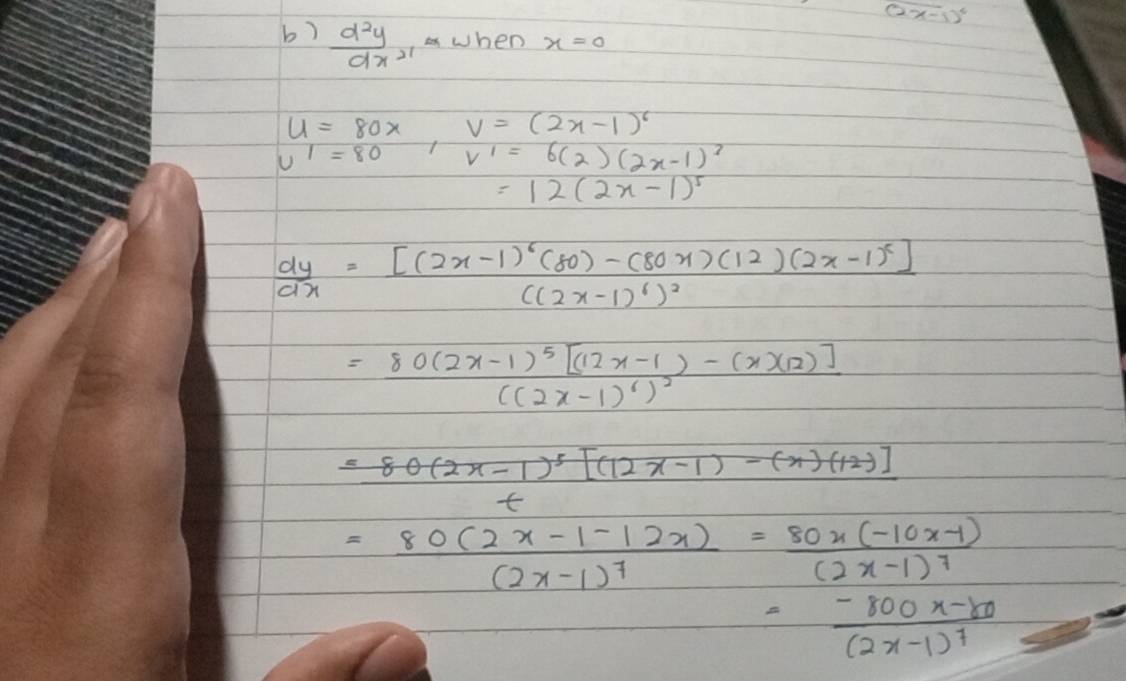 (2x-1)⁶
b) d²y/dx² when x=0
u = 80x , v = (2x-1)⁶
u' = 80 v' = 6(2)(2x-1)⁵
= 12(2x-1)⁵
dy/dx = [(2x-1)⁶(80) - (80x)(12)(2x-1)⁵] / ((2x-1)⁶)²
= 80(2x-1)⁵ [(12x-1) - (x)(12)] / ((2x-1)⁶)²
= 80(2x-1)⁵ [(12x-1) - (x)(12)] / t
= 80(2x-1-12x) / (2x-1)⁷ = 80x(-10x-1) / (2x-1)⁷
= -800x-80 / (2x-1)⁷